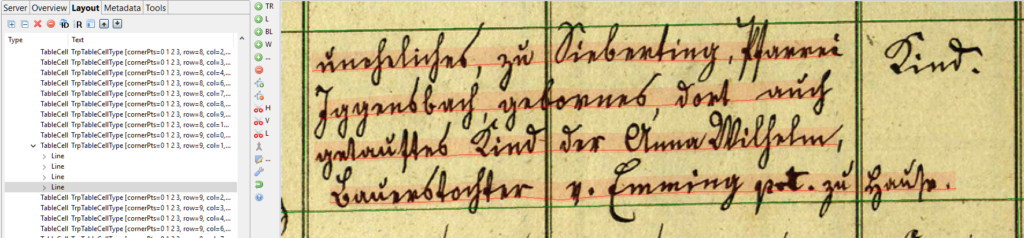 Server Overview Layout Metadata Tools
Type Text
TableCell TrpTableCellType [cornerPts=0 1 2 3, row=8, col=2,...
TableCell TrpTableCellType [cornerPts=0 1 2 3, row=8, col=3,...
TableCell TrpTableCellType [cornerPts=0 1 2 3, row=8, col=4,...
TableCell TrpTableCellType [cornerPts=0 1 2 3, row=8, col=5,...
TableCell TrpTableCellType [cornerPts=0 1 2 3, row=8, col=6,...
TableCell TrpTableCellType [cornerPts=0 1 2 3, row=8, col=7,...
TableCell TrpTableCellType [cornerPts=0 1 2 3, row=8, col=8,...
TableCell TrpTableCellType [cornerPts=0 1 2 3, row=8, col=9,...
TableCell TrpTableCellType [cornerPts=0 1 2 3, row=8, col=1...
TableCell TrpTableCellType [cornerPts=0 1 2 3, row=9, col=0,...
TableCell TrpTableCellType [cornerPts=0 1 2 3, row=9, col=1,...
Line
Line
Line
Line
TableCell TrpTableCellType [cornerPts=0 1 2 3, row=9, col=2,...
TableCell TrpTableCellType [cornerPts=0 1 2 3, row=9, col=3,...
TableCell TrpTableCellType [cornerPts=0 1 2 3, row=9, col=4,...
TableCell TrpTableCellType [cornerPts=0 1 2 3, row=9, col=5,...
TableCell TrpTableCellType [cornerPts=0 1 2 3, row=9, col=6,...
TR
L
BL
W
...
H
V
L
...
uneheliches, zu Sieberting, Pfarrei
Iggensbach, gebornes, dort auch
getauftes Kind der Anna Wilhelm,
Bauerstochter v. Emming pct. zu Hause.
Kind.